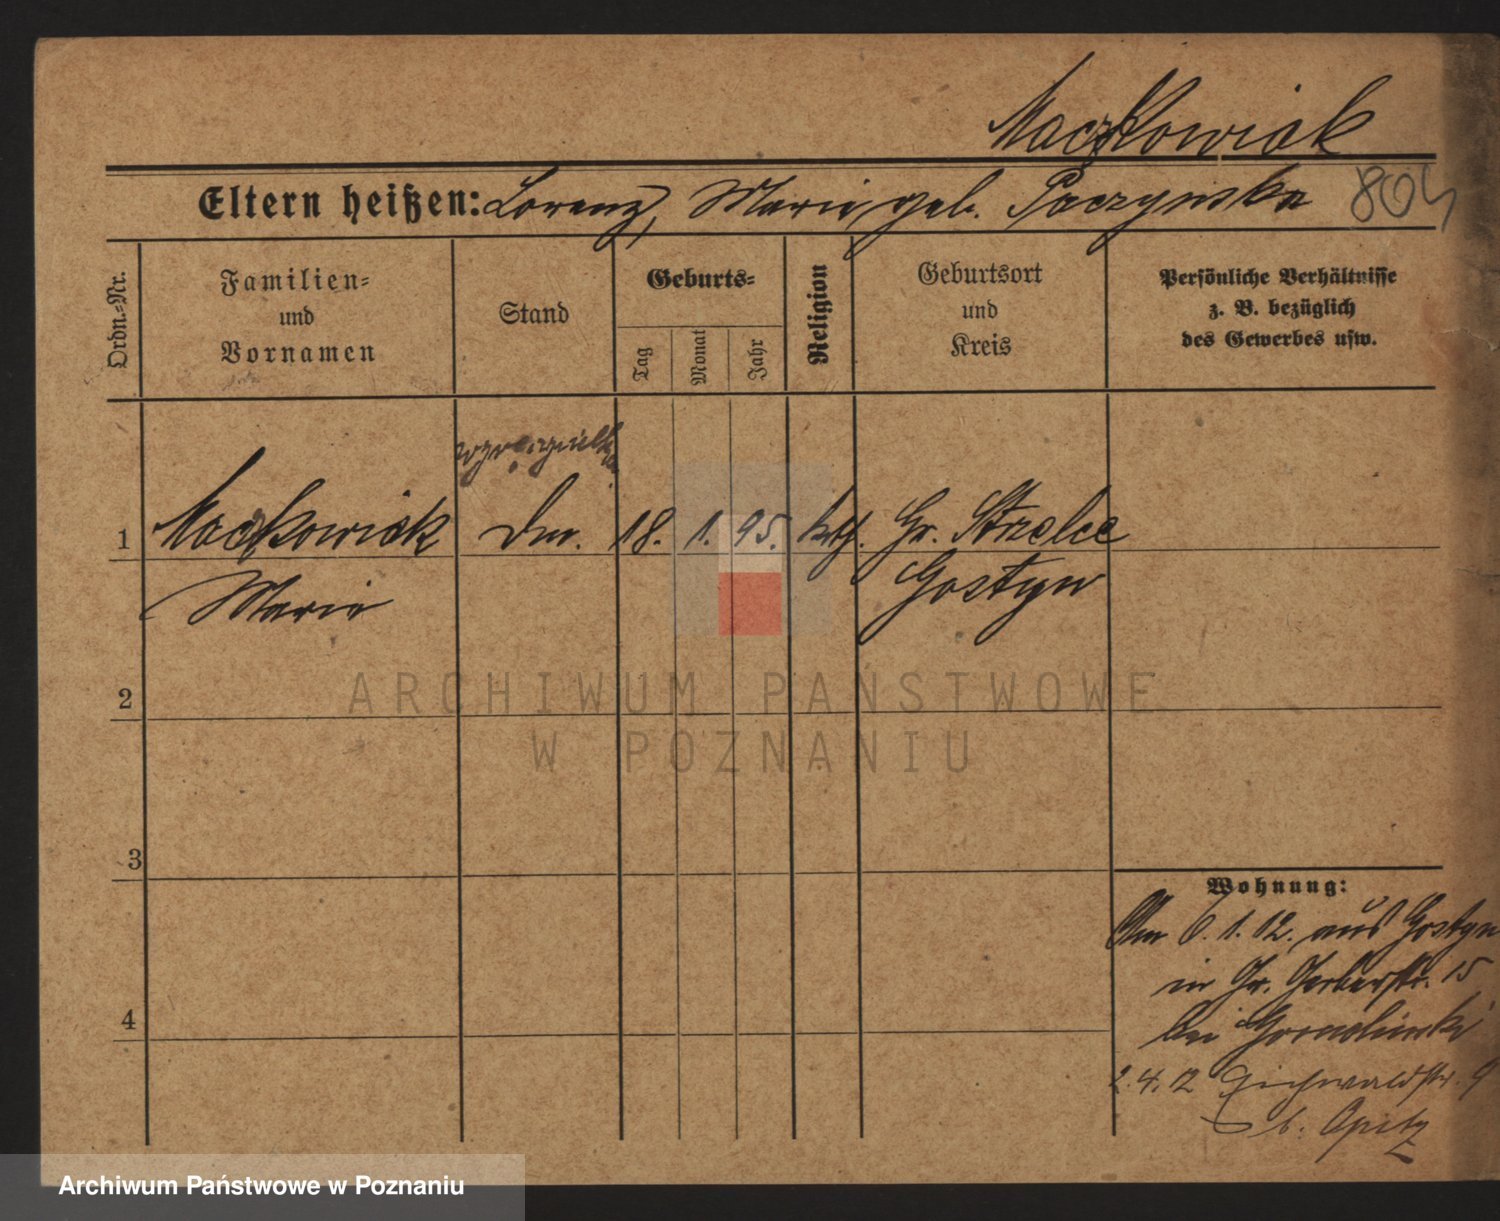 Maczkowiak
Eltern heißen: Lorenz, Marie, geb. Paczynska 804
Ordn.-Nr.
Familien-
und
Vornamen
Stand
Geburts-
Tag
Monat
Jahr
Religion
Geburtsort
und
Kreis
Persönliche Verhältnisse
z. B. bezüglich
des Gewerbes usw.
1 Maczkowiak 18. 1. 95. kth. Gr. Strzelce
Marie Gostyn
2
ARCHIWUM PAŃSTWOWE
W POZNANIU
3
4
Wohnung:
Am 6. 1. 12. aus Gostyn
in Gr. Gerberstr. 15
bei
2.4.12 Eichwaldstr. 9
b. Opitz
Archiwum Państwowe w Poznaniu